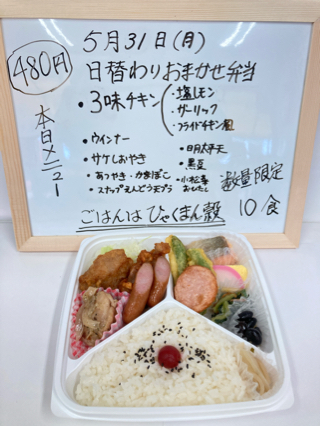 5月31日(月)
480円
日替わりおまかせ弁当
本日メニュー
・3味チキン
・塩レモン
・ガーリック
・フライドチキン風
・ウインナー
・サケしおやき
・あつやき・かまぼこ
・スナップえんどう天プラ
・明太天
・黒豆
・小松菜おひたし
数量限定
10食
ごはんは ひゃくまん穀